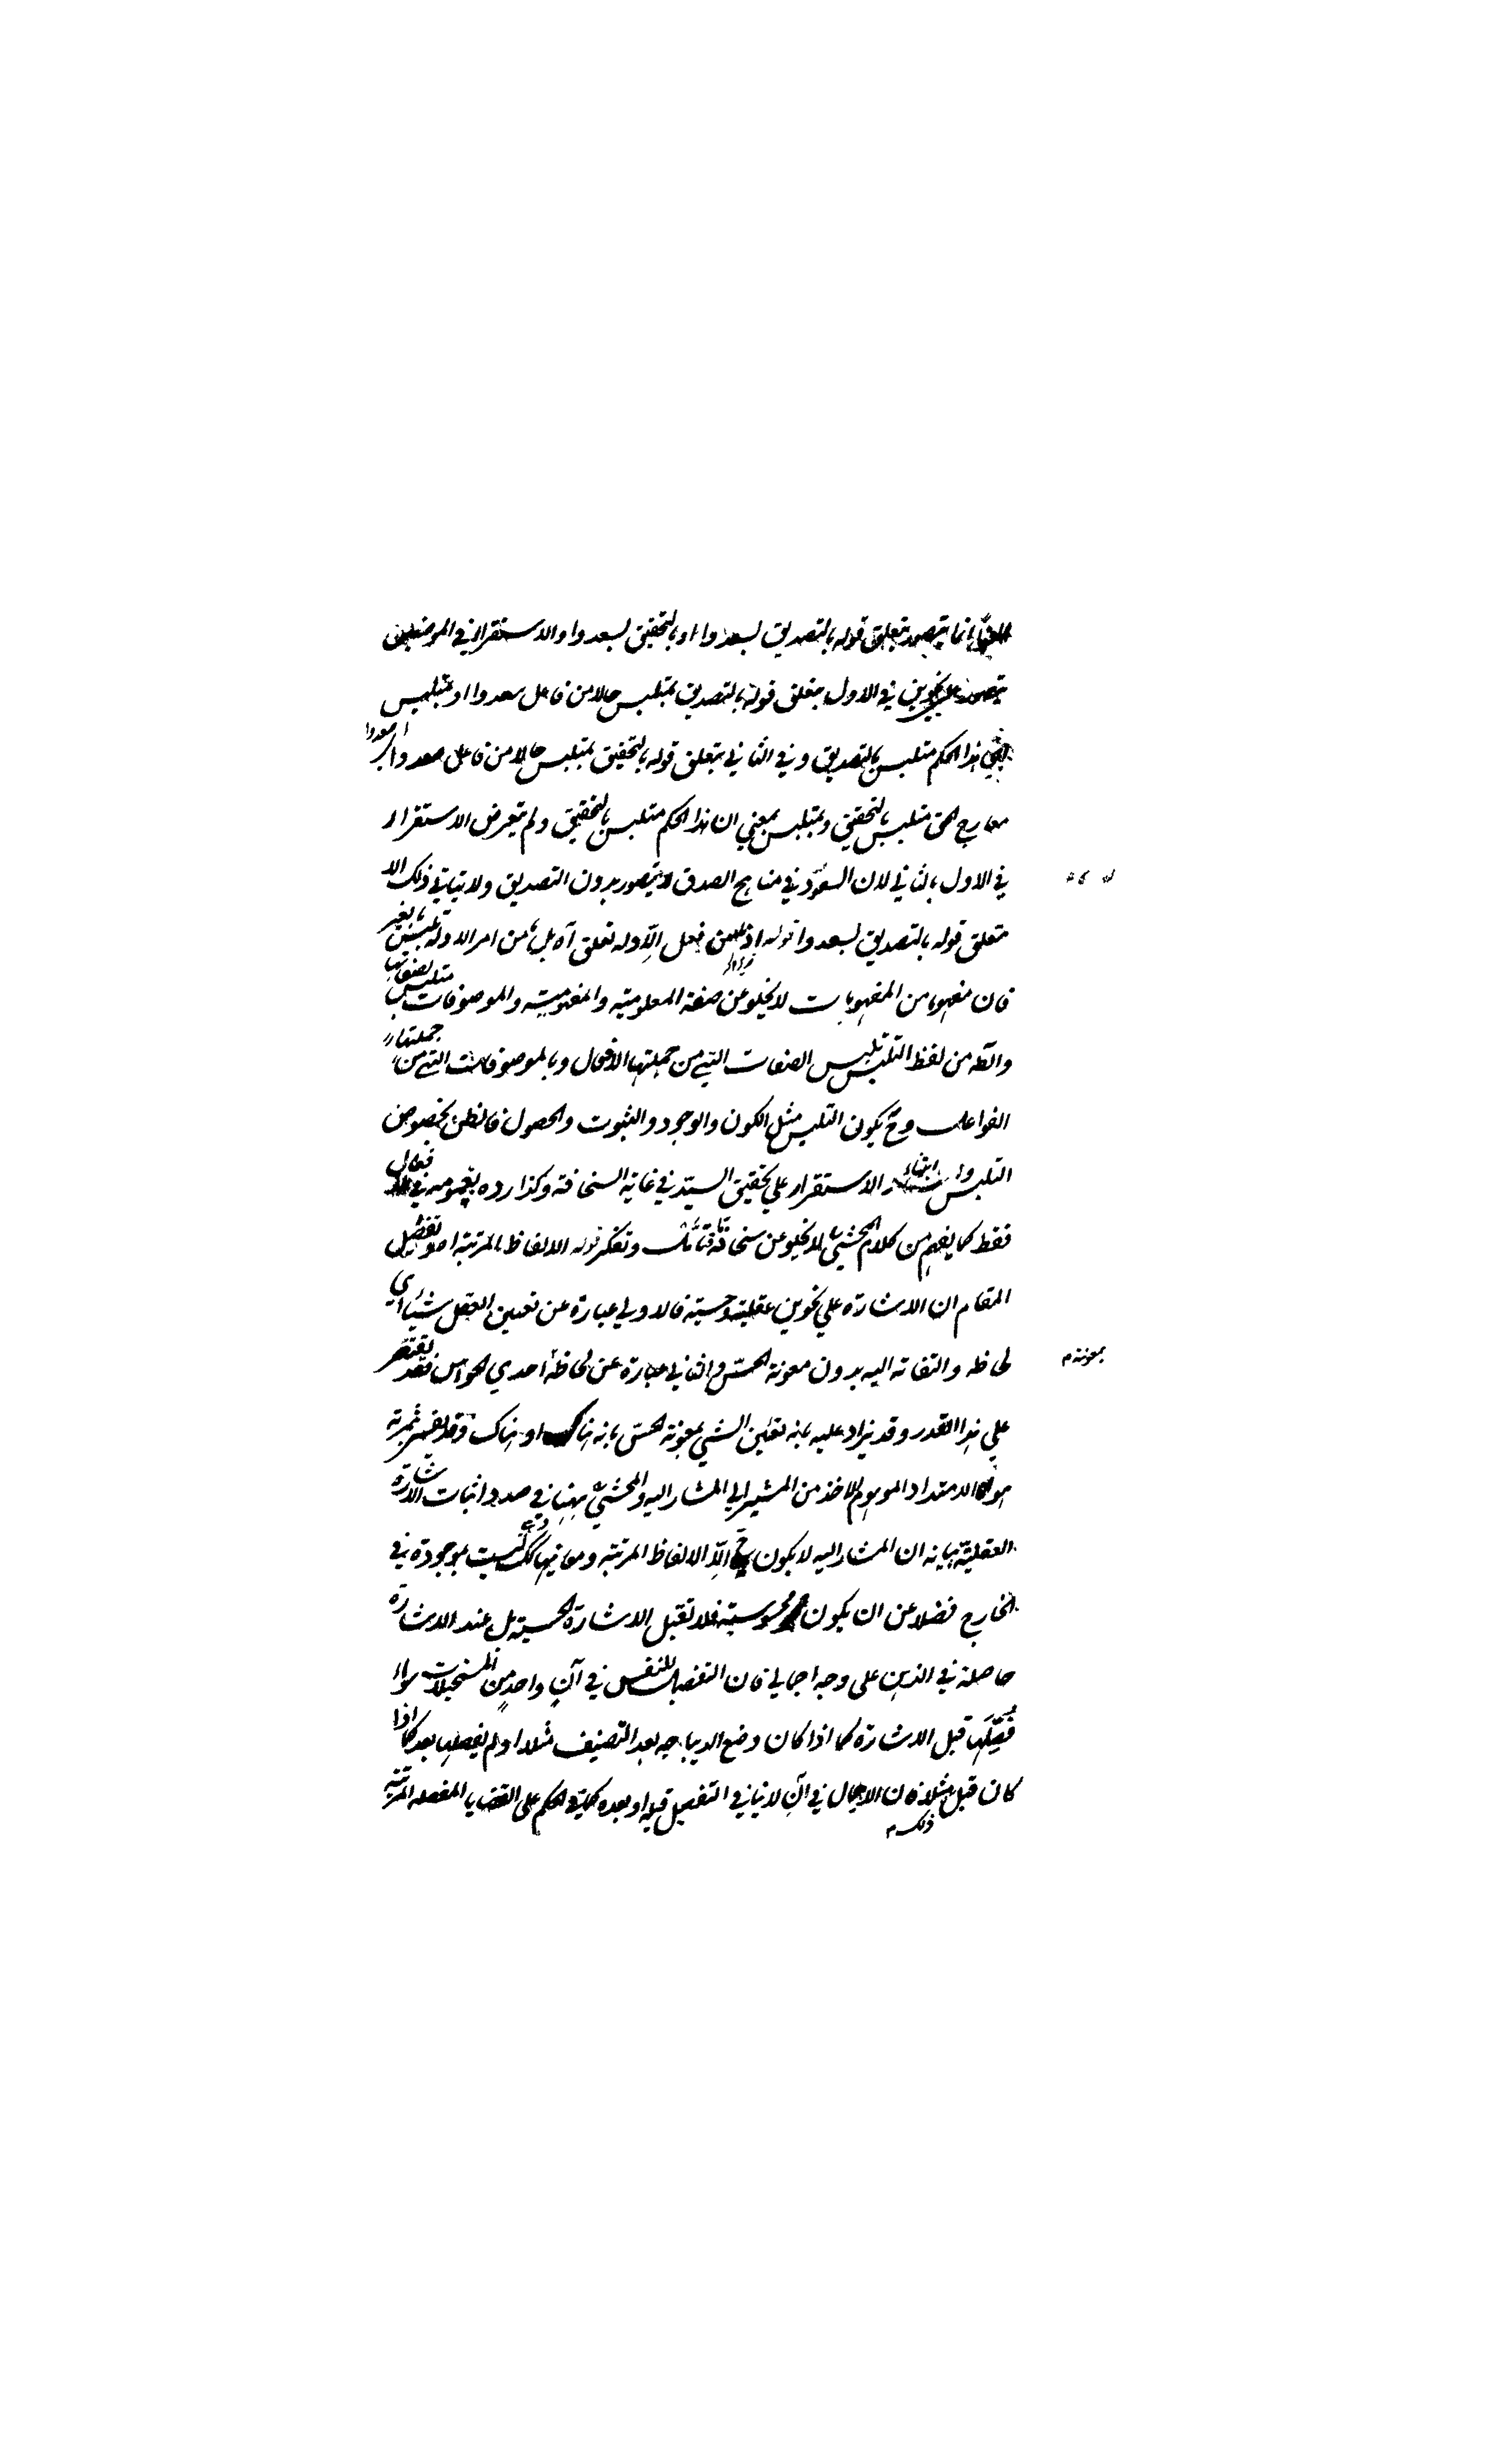 انما يتصور بتعلق قوله بالتصديق بسعدوا او بالتحقيق بسعدوا والاستقراء في الموضعين
يتصور على نحوين في الاول بتعلق قوله بالتصديق بمتلبس حالا من فاعل سعدوا او بمتلبس
هذا الحكم متلبس بالتصديق وفي الثاني بتعلق قوله بالتحقيق بمتلبس حالا من فاعل صعدوا
معارج الحق متلبس بالتحقيق وبمتلبس بمعنى ان هذا الحكم متلبس بالتحقيق ولم يتعرض الاستقرار
في الاول بالثاني لان السعود في مناهج الصدق لا يتصور بدون التصديق ولا يتأتى ذلك الا
متعلق قوله بالتصديق بسعدوا قوله اذ من فعل الا وله تعلق آه بل ما من امر الا وله تلبس بالغير
فان مفهوما من المفهومات لا يخلو عن صفة المعلومية والمفهومية والموصوفات متلبس بصفاتها
والآه من لفظ التلبس تلبس الصفات التي من جملتها الافعال وبالموصوفات التي من جملتها
الفواعل وح يكون التلبس مثل الكون والوجود والثبوت والحصول فالظن بخصوص
التلبس وابتناء الاستقرار على تحقيق السيد في غاية السخافة وكذا رده بعمومه في فعال
فقط كما يفهم من كلام المحشي لا يخلو عن سخافة فتأمل وتفكر قوله الالفاظ المرتبة اه تفصيل
المقام ان الاشارة على نحوين عقلية وحسية فالاولى عبارة عن تعيين العقل شيئا اي
لحاظه والتفاته اليه بدون معونة الحس والثاني عبارة عن لحاظه احدي الحواس فقد يقتصر
بمعونة م
على هذا القدر وقد يزاد عليه بانه تعيين الشيء بمعونة الحس بانه هناك او هناك وقد يفسر بثمرته
هو الامتداد الموهوم الاخذ من المشير الى المشار اليه والمحشي ههنا في صدد اثبات الاشارة
العقلية بيانه ان المشار اليه لا يكون ح الا الالفاظ المرتبة ومعانيها ليست بموجودة في
الخارج فضلا عن ان يكون محسوسة فلا تقبل الاشارة الحسية بل عند الاشارة
حاصلة في الذهن على وجه اجمالي فان التفصيل للنفس في آن واحد من المستحيلات سواء
فصلها قبل الاشارة كما اذا كان وضع الديباجه بعد التصنيف مثلا او لم يفصلها بعد كما اذا
كان قبل مثلا فان الاجمال في آن لا ينافي التفصيل قبله او بعده الحكم على القضايا المفصلة المرتبة
ذلك م